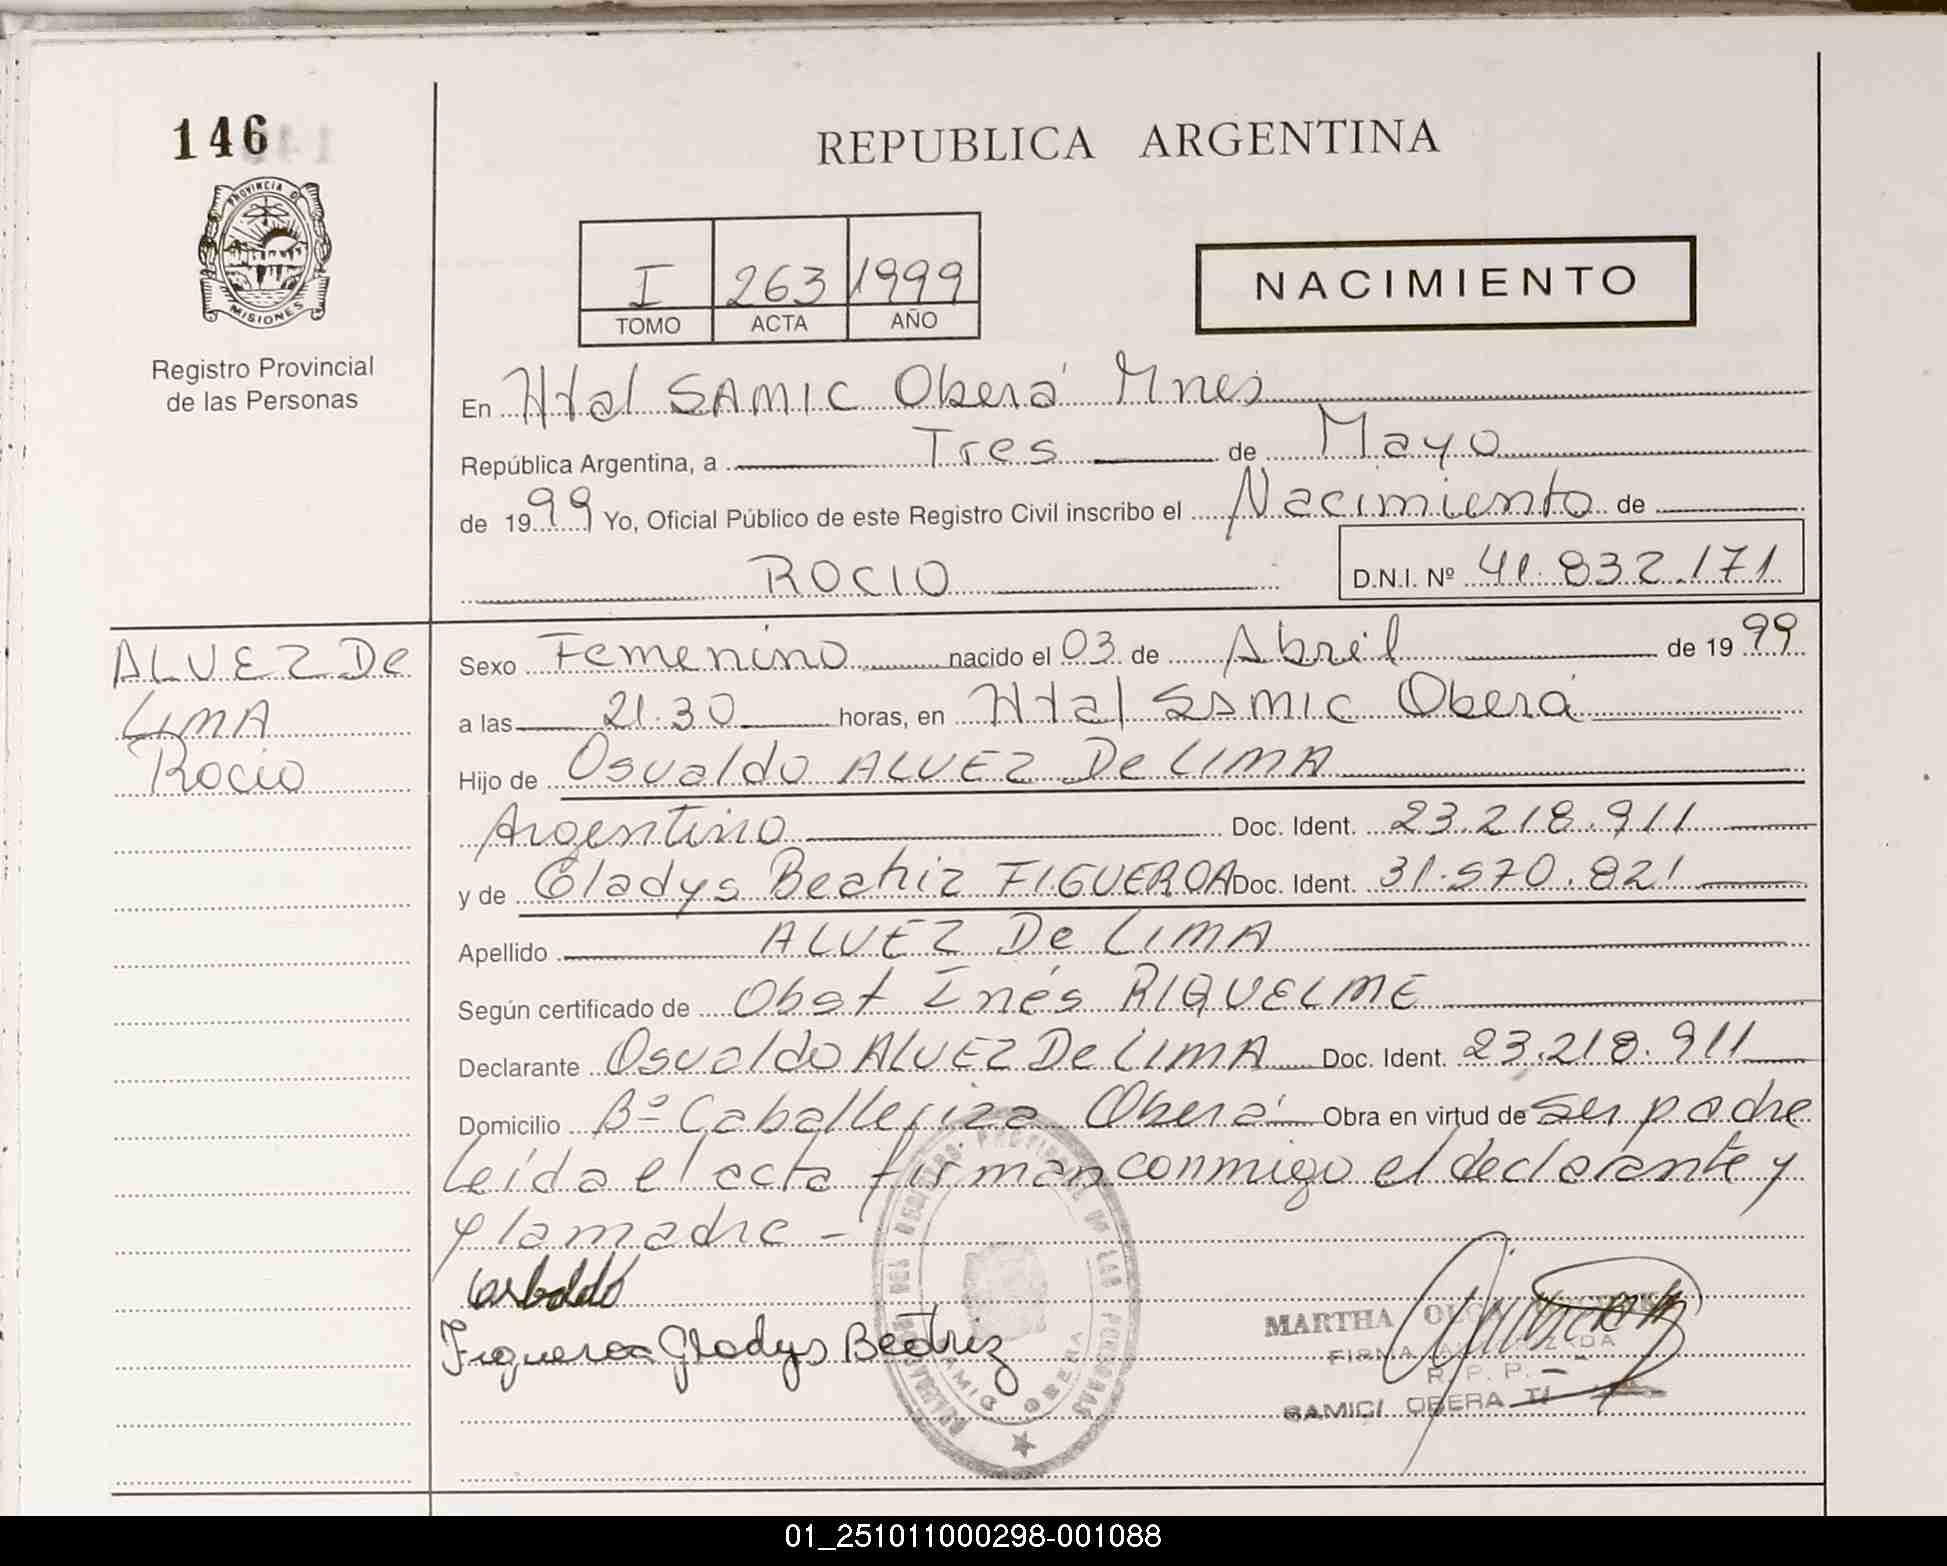 146
PROVINCIA D
MISIONES
Registro Provincial
de las Personas
REPUBLICA ARGENTINA
I 263 1999
TOMO ACTA AÑO
NACIMIENTO
En Htal SAMIC Oberá Mnes
República Argentina, a Tres de Mayo
de 1999 Yo, Oficial Público de este Registro Civil inscribo el Nacimiento de
ROCIO D.N.I. Nº 41.832.171
ALVEZ De
LIMA
Rocio
Sexo Femenino nacido el 03 de Abril de 1999
a las 21.30 horas, en Htal SAMIC Oberá
Hijo de Osvaldo ALVEZ De LIMA
Argentino Doc. Ident. 23.218.911
y de Gladys Beatriz FIGUEROA Doc. Ident. 31.570.821
Apellido ALVEZ De LIMA
Según certificado de Obst Inés RIQUELME
Declarante Osvaldo ALVEZ De LIMA Doc. Ident. 23.218.911
Domicilio Bº Caballeriza Oberá Obra en virtud de ser padre
Leída el acta firman conmigo el declarante y
y la madre -
Figueroa Gladys Beatriz
MARTHA
FIRMA
R.P.P.
SAMIC/ OBERA
01_251011000298-001088